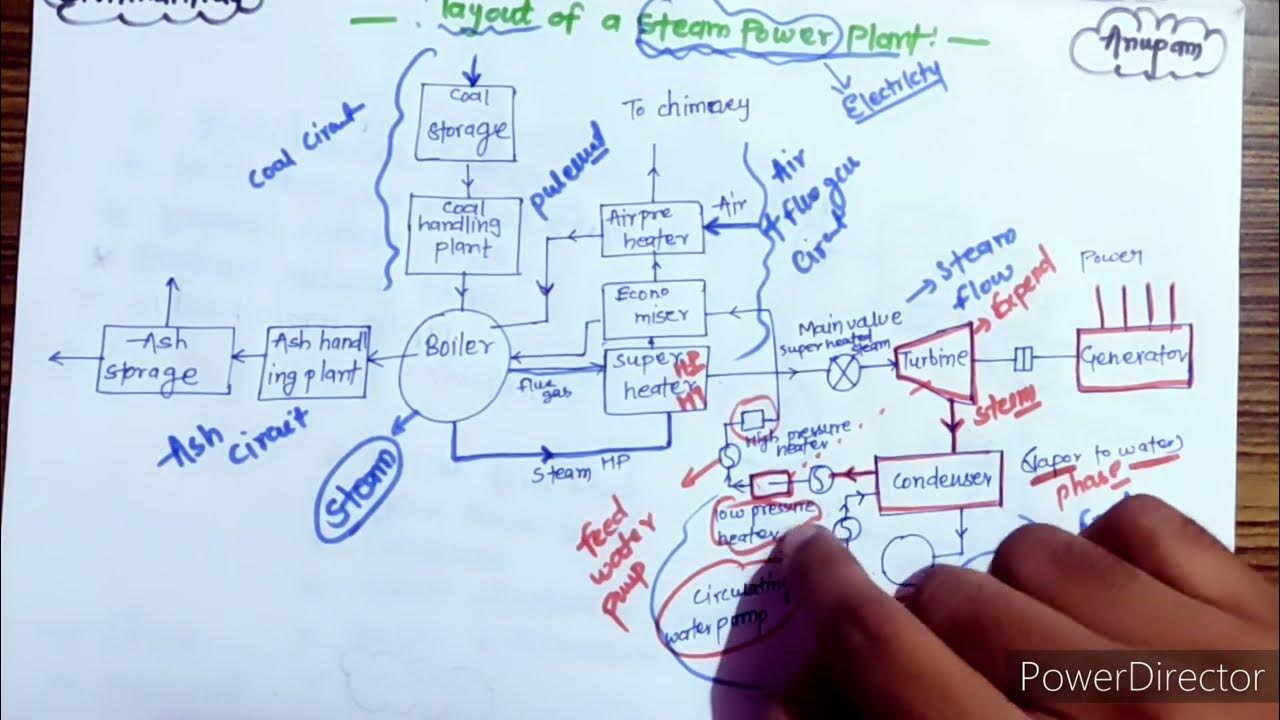 layout of a steam power plant:
Anupam
Electricty
coal
storage
coal circut
To chimevey
Air
Coal
handling
plant
Airpre
heater
Air
+ fluogcu
circut
steam
flow
Expend
Power
Econo
miser
Boiler
Ash
storage
Ash handl
ing plant
flue
gas
super
heater
Main valve
super heated
steam
Turbine
Generator
Ash
circuit
steam
steam
steam HP
High pressure
heater
condenser
(vapor to water)
phase
low pressure
heater
feed
water
pump
circulating
water pump
PowerDirector